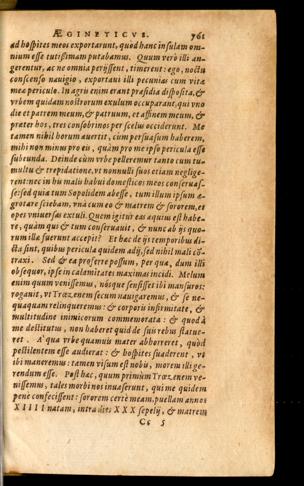 ÆGINETICVS. 761
ad hospites meos exportarunt, quod hanc insulam om-
nium esse tutissimam putabamus. Quum verò illi an-
gerentur, ac ne omnia perijssent, timerent: ego, noctu
conscenso nauigio, exportaui illi pecunias cum vita
meæ periculo. In agris enim erant præsidia disposita, &
vrbem quidam nostrorum exulum occuparant, qui vno
die et patrem meum, & patruum, et affinem meum, &
præter hos, tres consobrinos per scelus occiderunt. Me
tamen nihil horum auertit, cùm persuasum haberem,
mihi non minus pro eis, quàm pro me ipso pericula esse
subeunda. Deinde cùm vrbe pelleremur tanto cum tu-
multu & trepidatione, vt nonnulli suos etiam neglige-
rent: nec in hu malis habui domesticos meos conseruas-
se: sed quia eum Sopolidem abesse, tum illum ipsum æ-
grotare sciebam, vnà cum eo & matrem & sororem, et
opes vniuersas extuli. Quem igitur eas æquius est habe-
re, quàm qui & tum conseruauit, & nunc ab ijs quo-
rum illæ fuerunt accepit? Et hæc de ijs temporibus di-
cta sint, quibus pericula quidem adij, sed nihil mali cō-
traxi. Sed & ea proferre possum, per quæ, dum illi
obsequor, ipse in calamitates maximas incidi. Melum
enim quum venissemus, nósque sensisset ibi mansuros:
rogauit, vt Trœzenem secum nauigaremus, & se ne-
quaquam relinqueremus: & corporis infirmitate, &
multitudine inimicorum commemorata: & quod à
me destitutus, non haberet quid de suis rebus statue-
ret. A' qua vrbe quamuis mater abhorreret, quòd
pestilentem esse audierat: & hospites suaderent, vt
ibi maneremus: tamen visum est nobis, morem illi ge-
rendum esse. Post hæc, quum primùm Trœzenem ve-
nissemus, tales morbi nos inuaserunt, qui me quidem
penè confecissent: sororem certè meam, puellam annos
XIIII natam, intra dies XXX sepelij, & matrem
Cc 5